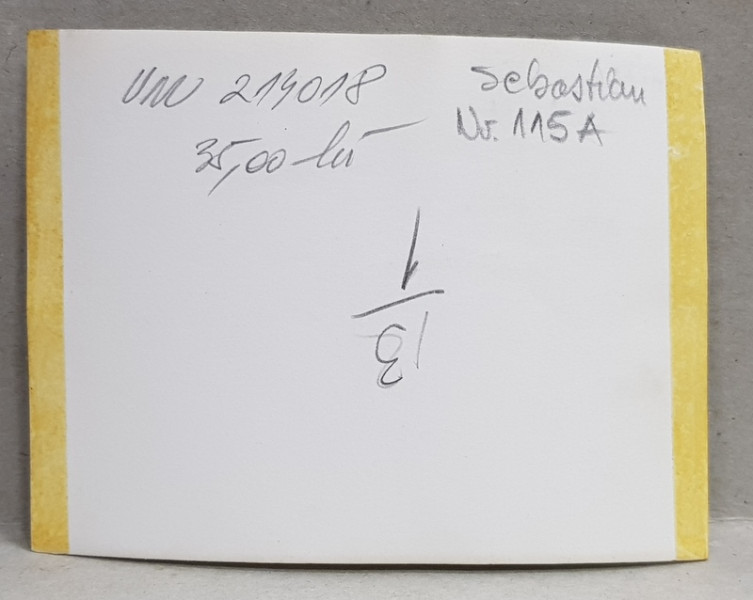 219018
35,00 lei
Sebastian
Nr. 115 A
13
1